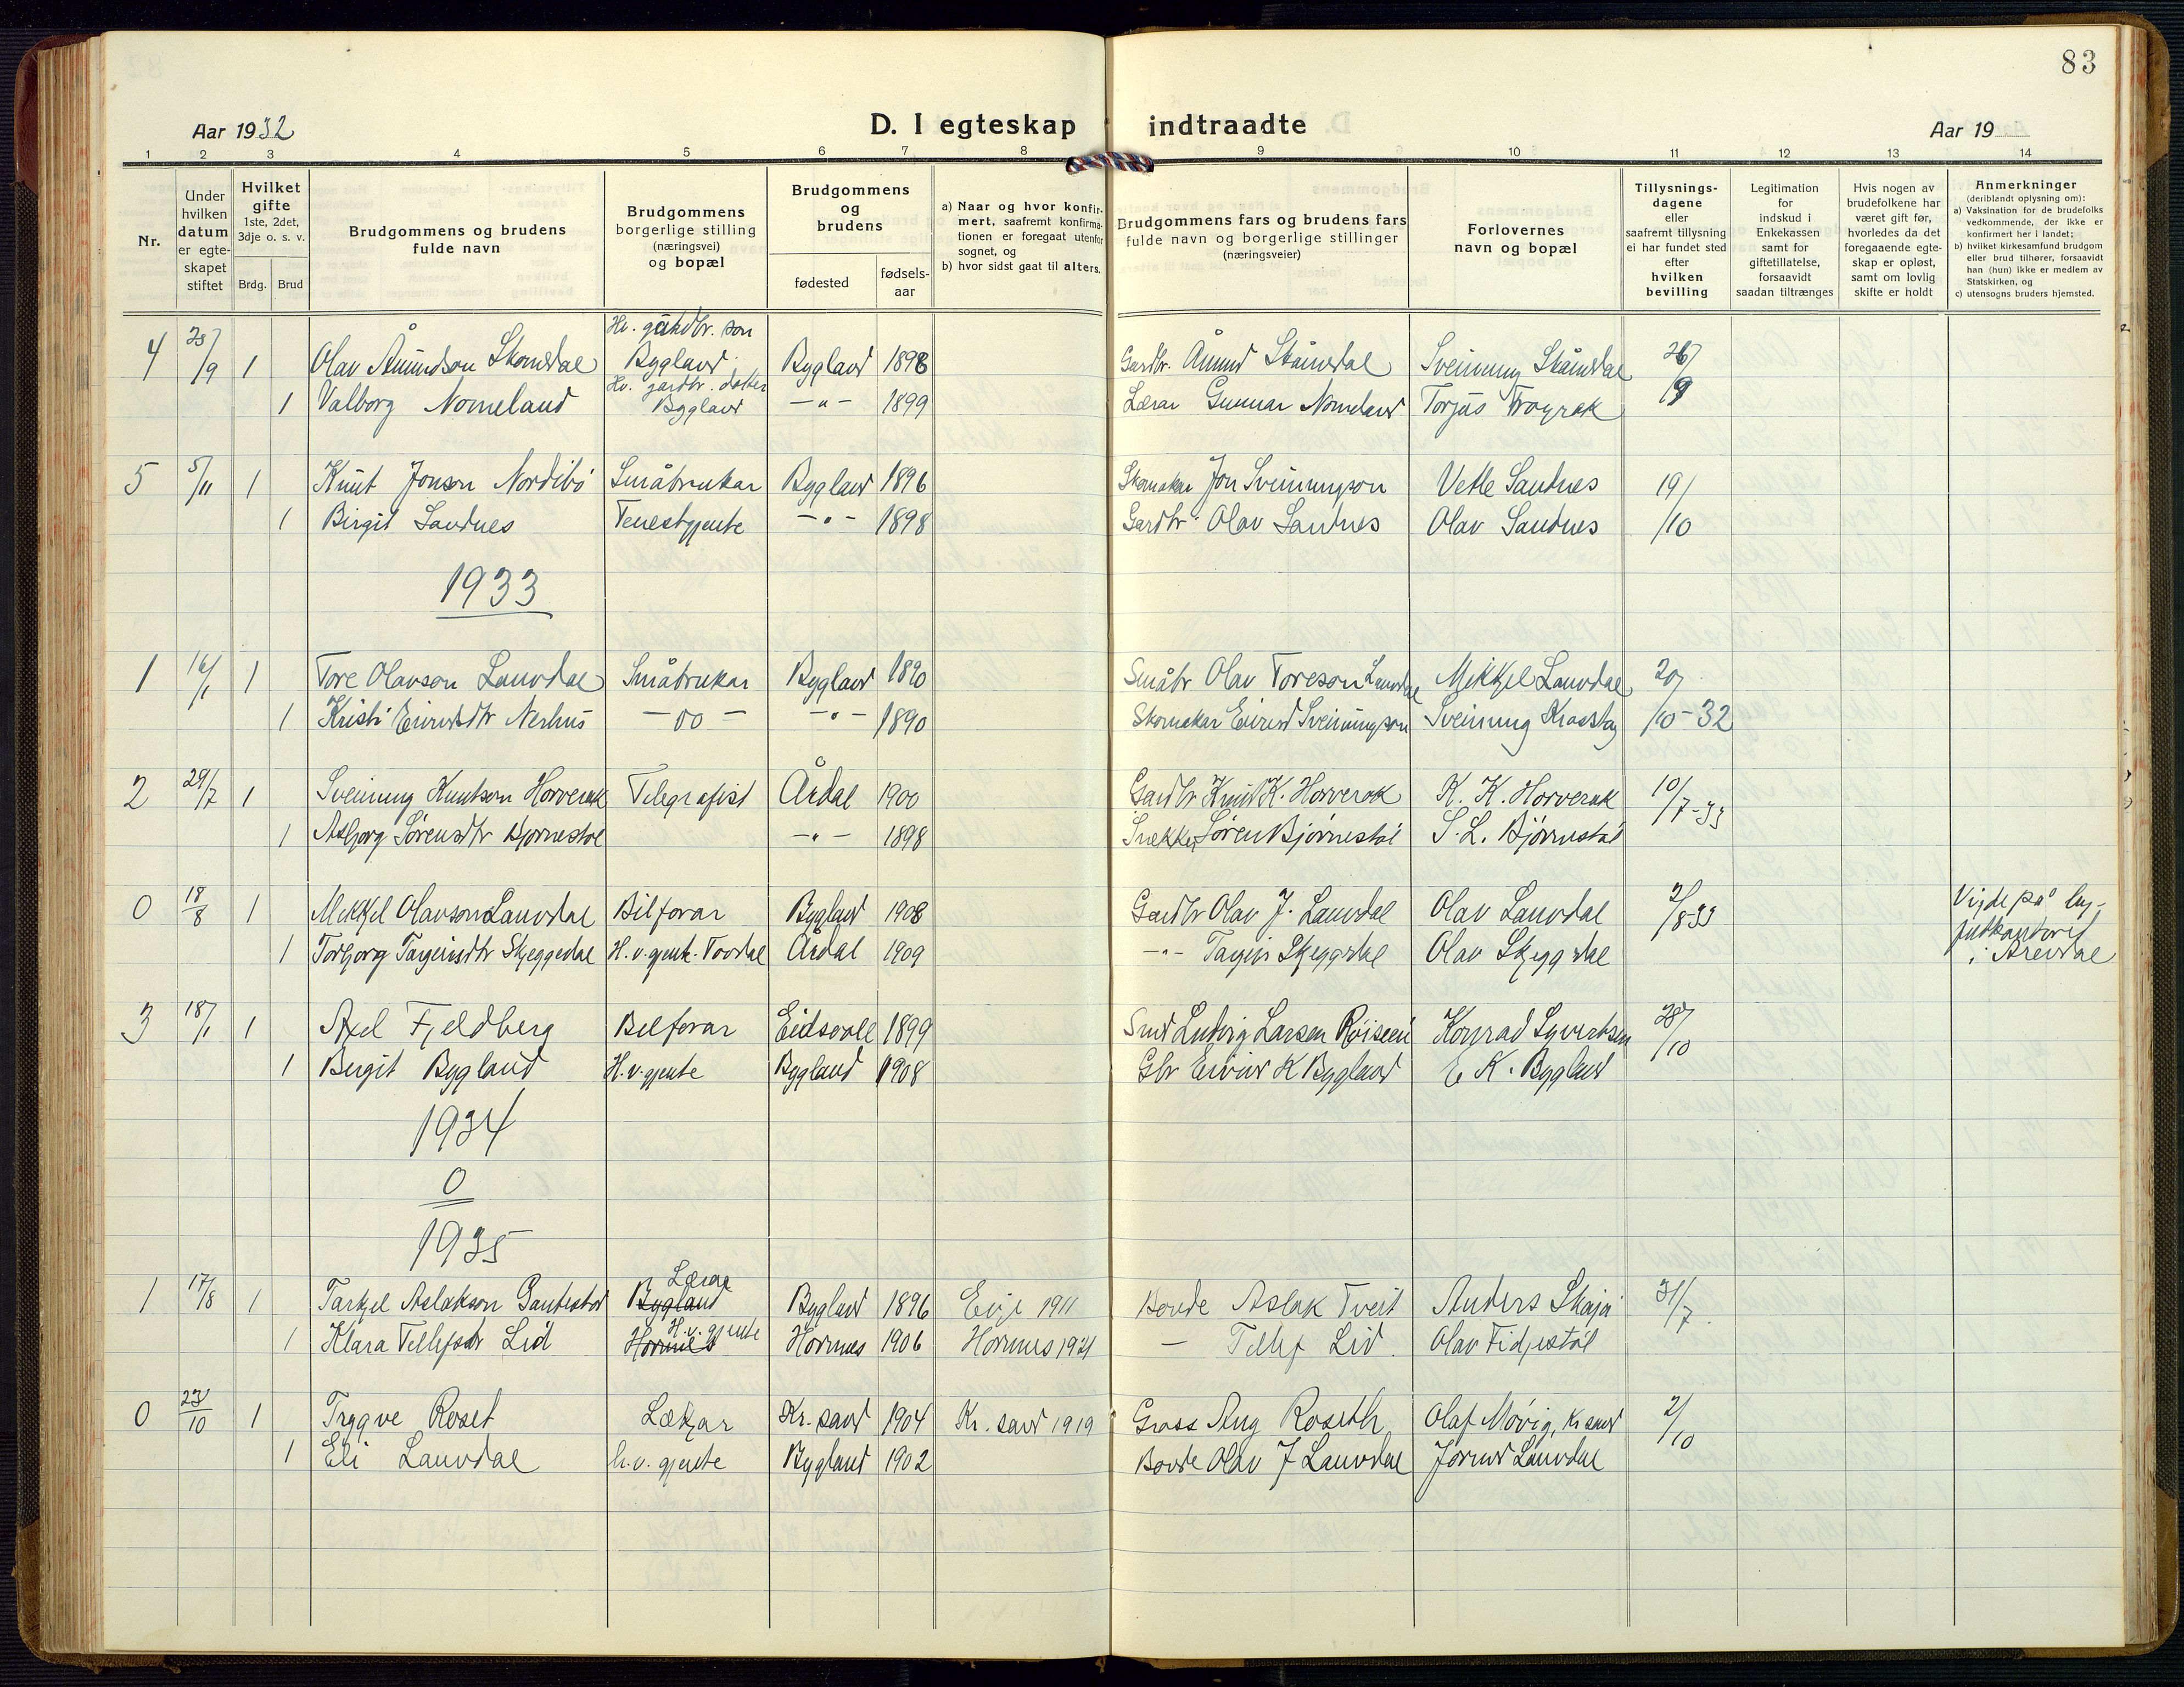 83
Aar 1932
D. I egteskap indtraadte
Aar 19
1 2 3 4 5 6 7 8 9 10 11 12 13 14
Nr.
Under hvilken datum er egte-skapet stiftet
Hvilket gifte
1ste, 2det, 3dje o. s. v.
Brdg. Brud
Brudgommens og brudens fulde navn
Brudgommens borgerlige stilling (næringsvei) og bopæl
Brudgommens og brudens
fødested
fødsels-aar
a) Naar og hvor konfir-mert, saafremt konfirma-tionen er foregaat utenfor sognet, og
b) hvor sidst gaat til alters.
Brudgommens fars og brudens fars fulde navn og borgerlige stillinger (næringsveier)
Forlovernes navn og bopæl
Tillysnings-dagene eller saafremt tillysning ei har fundet sted efter hvilken bevilling
Legitimation for indskud i Enkekassen samt for giftetillatelse, forsaavidt saadan tiltrænges
Hvis nogen av brudefolkene har været gift før, hvorledes da det foregaaende egte-skap er opløst, samt om lovlig skifte er holdt
Anmerkninger (deriblandt oplysning om):
a) Vaksination for de brudefolks vedkommende, der ikke er konfirmert her i landet;
b) hvilket kirkesamfund brudgom eller brud tilhører, forsaavidt han (hun) ikke er medlem av Statskirken, og
c) utensogns bruders hjemsted.
Hv. gardbr. son
4 /9 1 Olav Åmundson Skomedal Bygland Bygland 1898 Gardbr. Åmund Skåmedal Sveinung Skåmedal 26/9
Hv. gardbr. dotter
1 Valborg Nomeland Bygland -"- 1899 Lærar Gunnar Nomeland Torjus Frøyrak
5 5/11 1 Knut Jonson Nordibø Småbrukar Bygland 1896 Skomakar Jon Sveinungson Vetle Sandnes 19/10
1 Birgit Sandnes Tenestgjente -"- 1898 Gardbr Olav Sandnes Olav Sandnes
1933
1 16/1 1 Tore Olavson Lauvdal Småbrukar Bygland 1890 Småbr Olav Toreson Lauvdal Mikkjel Lauvdal 20/10-32
1 Kristi Eivindsdtr Nerhus -oo- -"- 1890 Skomakar Eivind Sveinungson Sveinung
2 29/7 1 Sveinung Knutson Horverak Telegrafist Årdal 1900 Gardbr Knut K. Horverak K. K. Horverak 10/7-33
1 Asbjørg Sørensdtr Bjørnestøl -"- 1898 Snekker Søren Bjørnestøl S. L. Bjørnestøl
0 18/8 1 Mikkjel Olavson Lauvdal Bilførar Bygland 1908 Gardbr Olav J. Lauvdal Olav Lauvdal 2/8-33 Vigde på by-
1 Torbjørg Targeirsdtr Skjeggedal H.v.gjente. Tovdal Årdal 1909 -"- Skjeggedal Olav Skjeggedal futkontoret
i Arendal
3 18/1 1 Axel Fjeldberg Bilførar Eidsvoll 1899 Smed Ludvig Larsen Konrad Syvertsen 28/10
1 Birgit Bygland H.v.gjente Bygland 1908 Gbr Eivind K Bygland E K. Bygland
1934
0
1935
Lærar
1 17/8 1 Tarkjel Aslakson Gautestad Bygland Bygland 1896 Evje 1911 Bonde Aslak Tveit Anders Skajå 31/7
H.v. gjente
1 Klara Tellefsdtr Lid Hornnes Hornnes 1906 Hornnes 1921 - Tellef Lid. Olav Fidjestøl
0 23/10 1 Trygve Roset Lækjar Kr. sand 1904 Kr. sand 1919 Gross Aug Roseth Olaf Møvig, Kr sand 2/10
1 Eli Lauvdal h.v. gjente Bygland 1902 Bonde Olav J Lauvdal Jørund Lauvdal